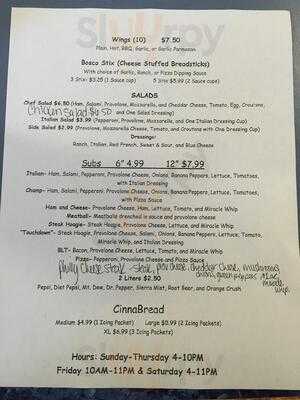 Wings (10) $7.50
Plain, Hot, BBQ, Garlic, or Garlic Parmesan
Bosco Stix (Cheese Stuffed Breadsticks)
With choice of Garlic, Ranch, or Pizza Dipping Sauce
3 Stix: $3.25 (1 Sauce cup) 5 Stix $5.99 (2 Sauce cups)
SALADS
Chef Salad $6.50 (Ham, Salami, Provolone, Mozzarella, and Cheddar Cheese, Tomato, Egg, Croutons,
Chicken Salad $6.50 and One Salad Dressing)
Italian Salad $3.99 (Pepperoni, Provolone, Mozzarella, and One Italian Dressing Cup)
Side Salad $2.99 (Provolone, Mozzarella Cheese, Tomato, and Croutons with One Dressing Cup)
Dressings:
Ranch, Italian, Red French, Sweet & Sour, and Blue Cheese
Subs 6" 4.99 12" $7.99
Italian- Ham, Salami, Pepperoni, Provolone Cheese, Onions, Banana Peppers, Lettuce, Tomatoes,
with Italian Dressing
Champ- Ham, Salami, Pepperoni, Provolone Cheese, Onions, Banana Peppers, Lettuce, Tomatoes,
with Pizza Sauce
Ham and Cheese- Provolone Cheese, Ham, Lettuce, Tomato, and Miracle Whip
Meatball- Meatballs drenched in sauce and provolone cheese
Steak Hoagie- Steak Hoagie, Provolone Cheese, Lettuce, and Miracle Whip
"Touchdown"- Steak Hoagie, Provolone Cheese, Salami, Onions, Banana Peppers, Lettuce, Tomato,
Miracle Whip, and Italian Dressing
BLT- Bacon, Provolone Cheese, Lettuce, Tomato, and Miracle Whip
Pizza- Pepperoni, Provolone Cheese and Pizza Sauce
Philly Cheese Steak - Steak, prov cheese, cheddar cheese, mushrooms
onions, green peppers
miracle
whip
2 Liters $2.50
Pepsi, Diet Pepsi, Mt. Dew, Dr. Pepper, Sierra Mist, Root Beer, and Orange Crush
CinnaBread
Medium $4.99 (1 Icing Packet) Large $0.99 (2 Icing Packets)
XL $6.99 (3 Icing Packets)
Hours: Sunday-Thursday 4-10PM
Friday 10AM-11PM & Saturday 4-11PM